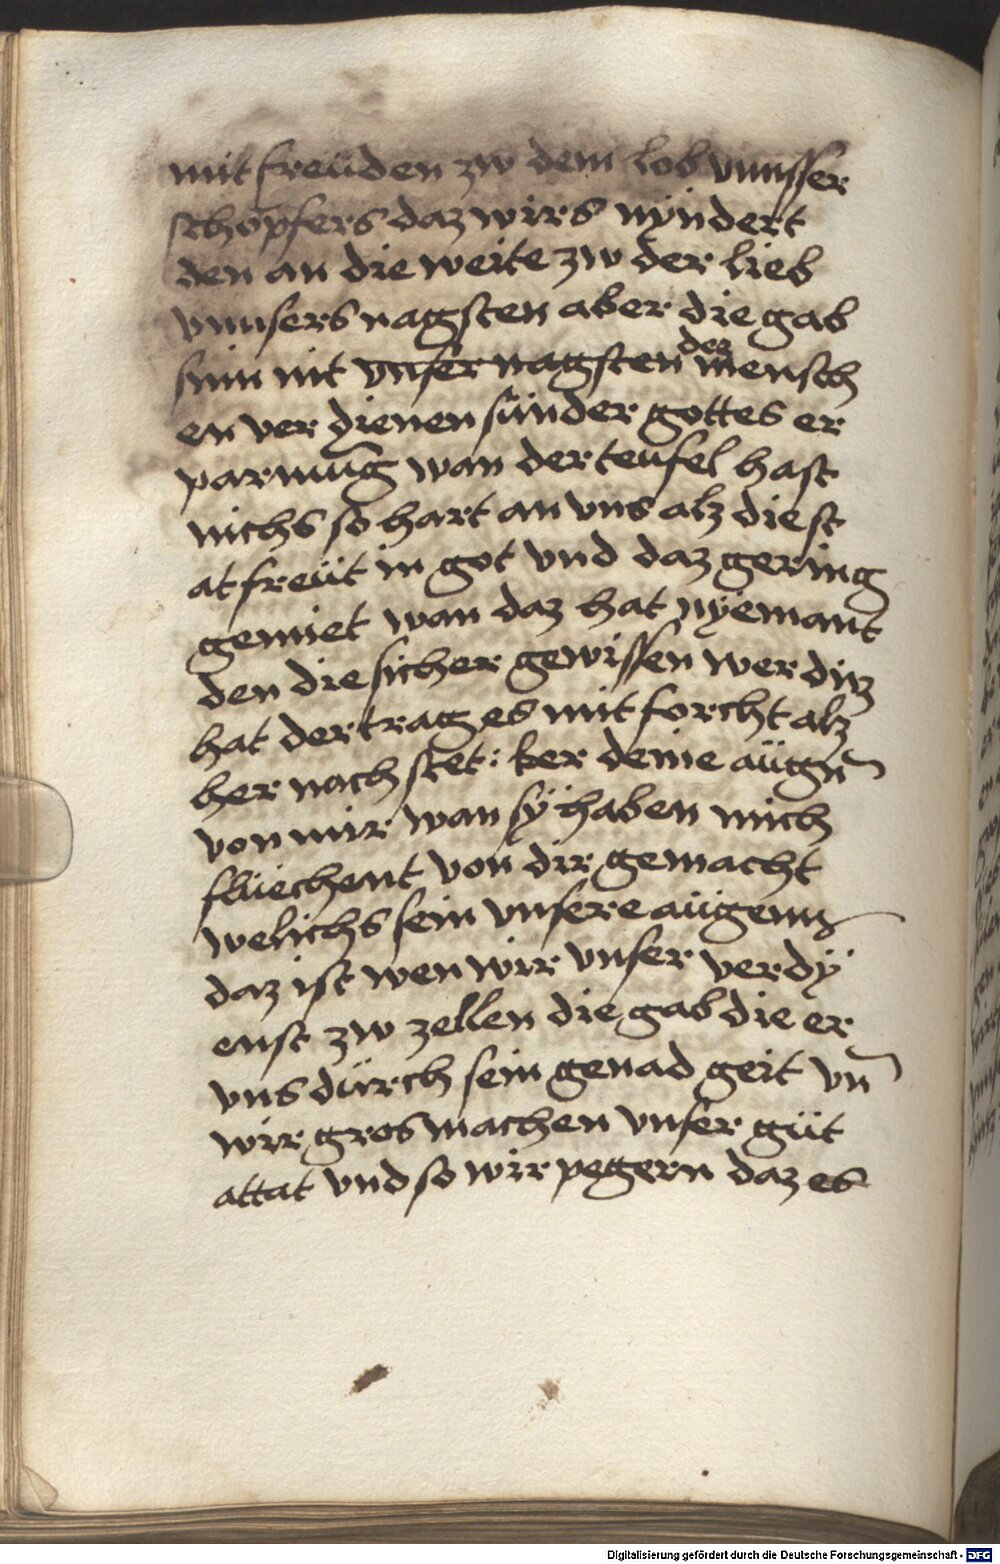 mit freüden zw dem lob vnnsser
schöpfers daz wirs nÿndert
den an die weite zw der lieb
vnnsers nagsten aber die gab
sinn nit vnser nagsten der mensch
en ver dienen sünder gottes er
parmūg wan der teufel hast
nichs so hart an vns alz die st
at freüt in got vnd daz gering
gemiet wan daz hat nÿemant
den die sicher gewissen wer diz
hat der trag es mit forcht alz
her nach stet : ker deine aügn̄
von mir wan sÿ haben mich
fliechent von dir gemacht
welichs sein vnsere aügenn
daz ist wen wir vnser verdÿ
enst zw zellen die gab die er
vns dürch sein genad geit vn̄
wir gros machen vnser güt
attat vnd so wir pegern daz es
Digitalisierung gefördert durch die Deutsche Forschungsgemeinschaft - DFG